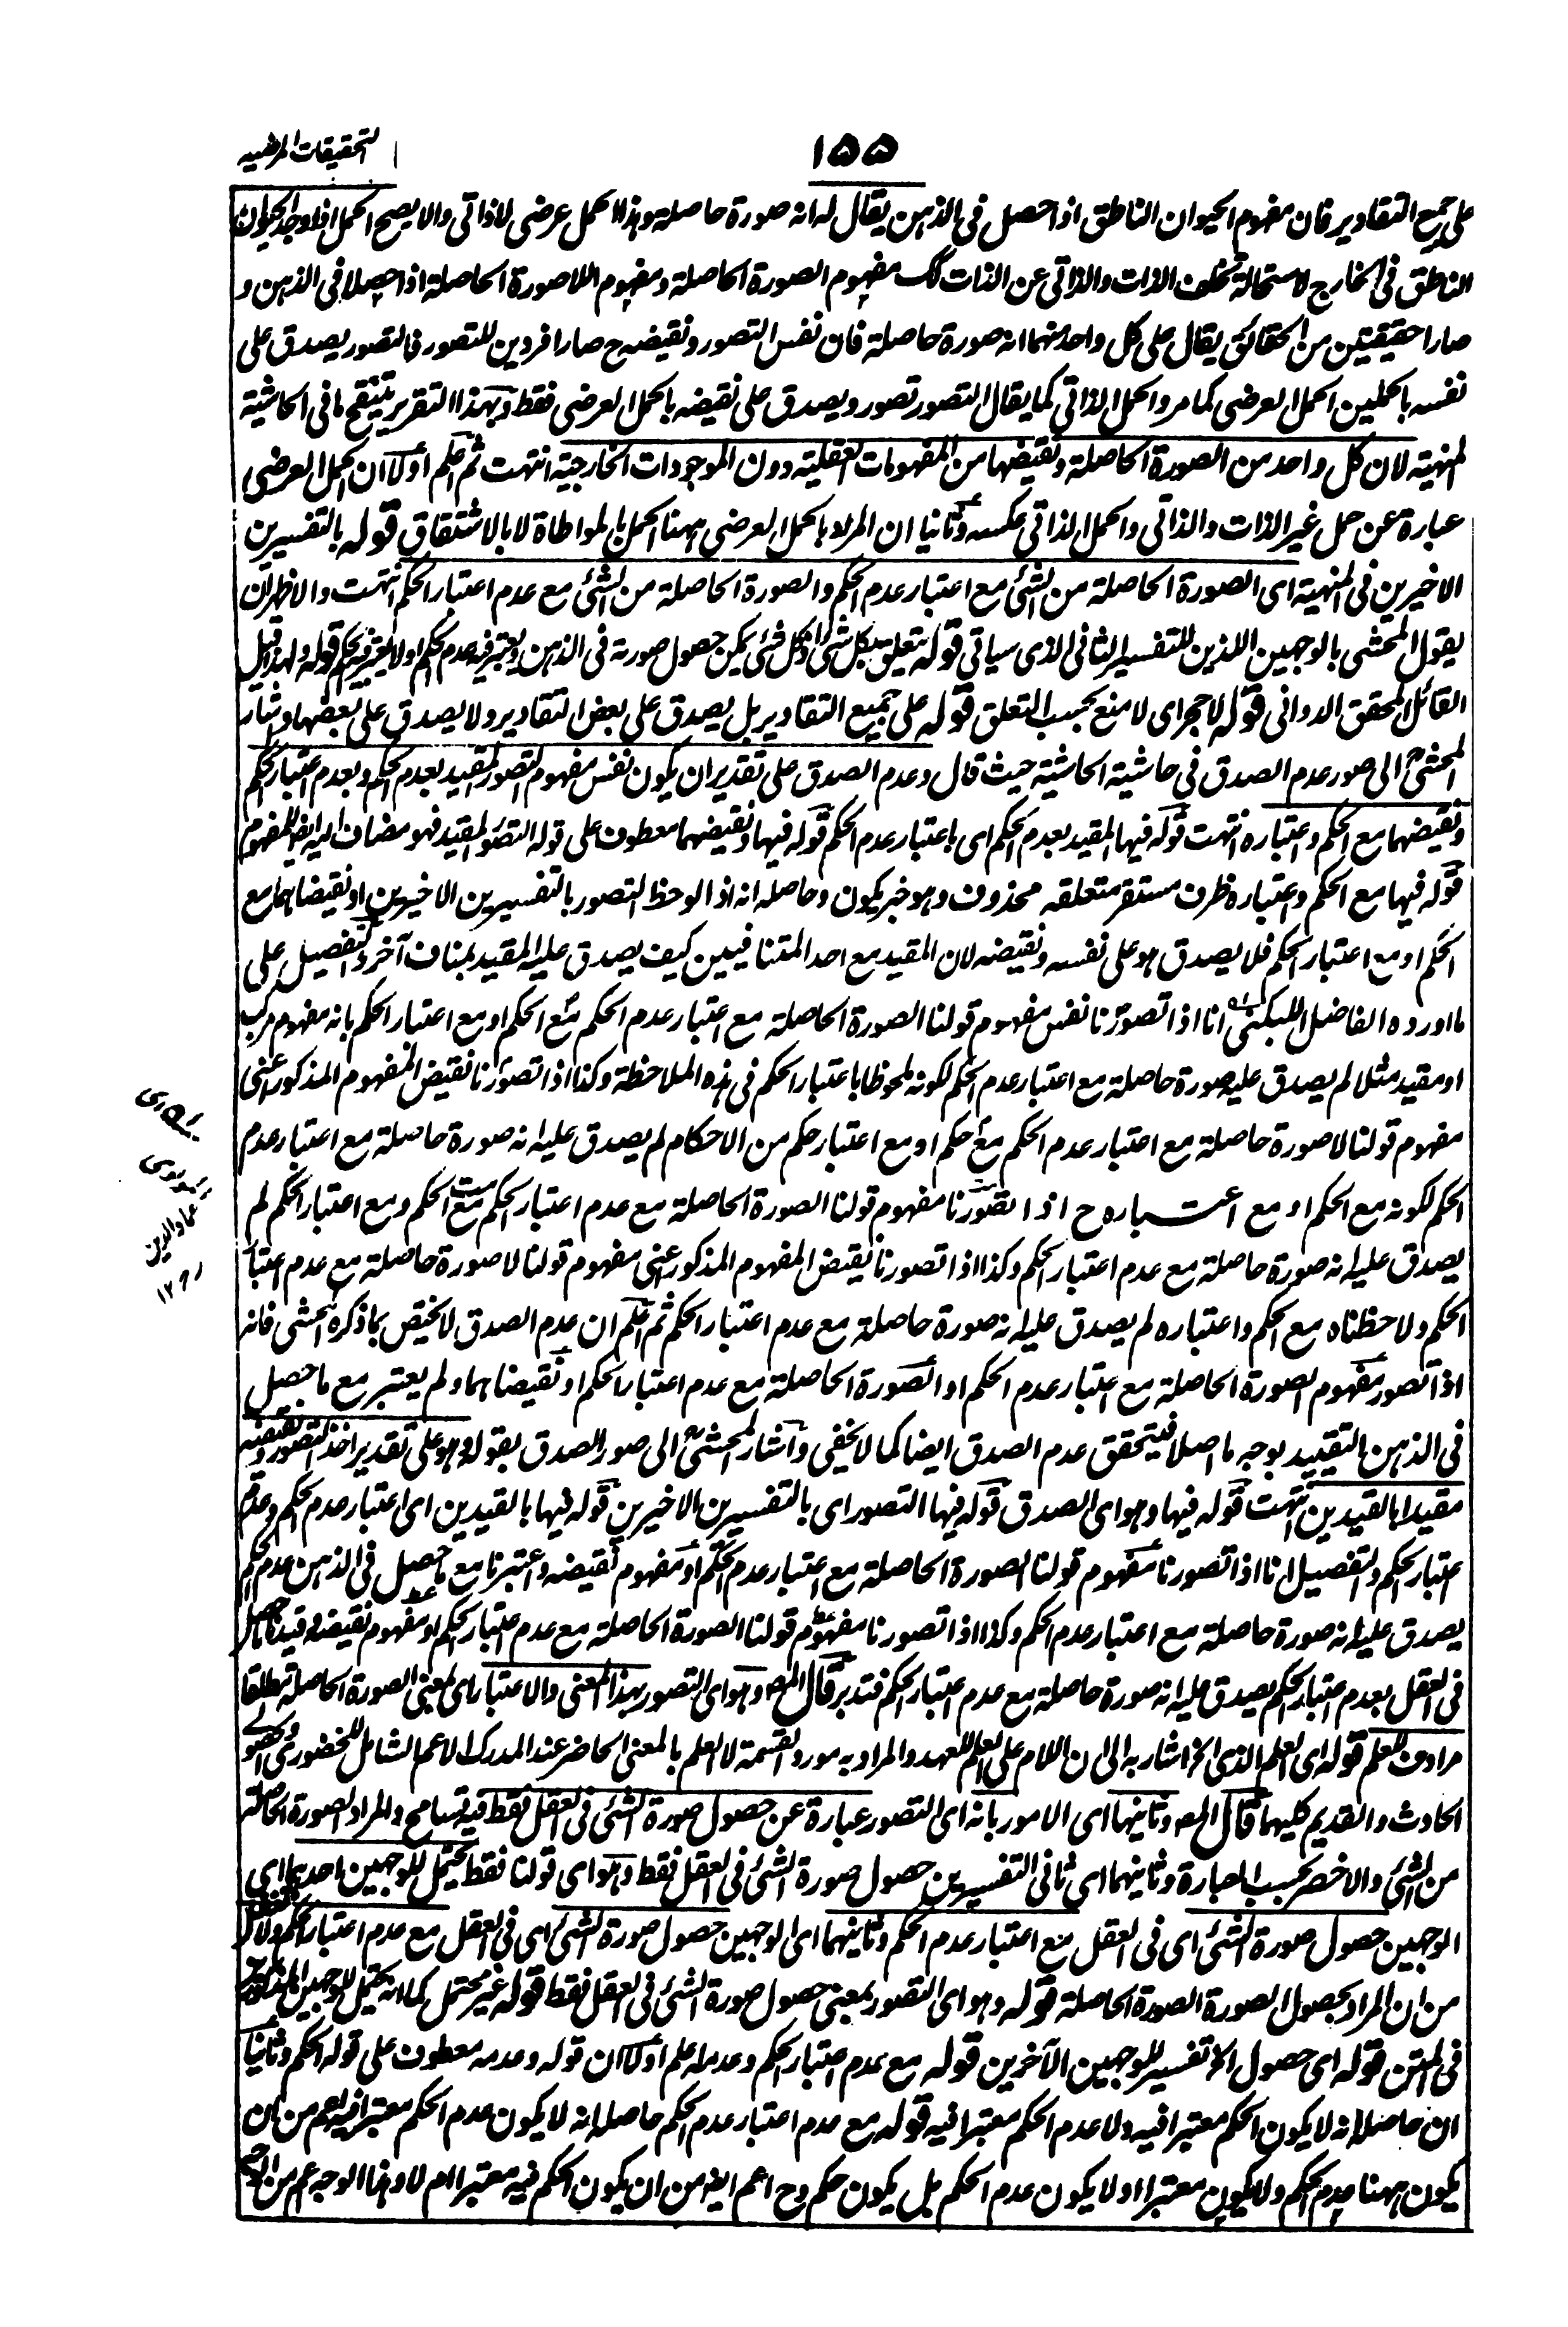 التحقيقات المرضيه
١٥٥
على جميع التقادير فان مفهوم الحيوان الناطق اذا حصل فى الذهن يقال له انه صورة حاصلة وهذا الحمل عرضى لا ذاتى والا يصح الحمل اذا وجد الحيوان
الناطق فى الخارج لاستحالة تخلف الذات والذاتى عن الذات كك مفهوم الصورة الحاصلة ومفهوم اللاصورة الحاصلة اذا حصلا فى الذهن و
صارا حقيقتين من الحقائق يقال على كل واحد منهما انه صورة حاصلة فان نفس التصور ونقيضه ح صارا فردين للتصور فالتصور يصدق على
نفسه بالحملين الحمل العرضى كما مر والحمل الذاتى كما يقال التصور تصور ويصدق على نقيضه بالحمل العرضى فقط وبهذا التقرير تنقيح ما فى الحاشية
المنهية لان كل واحد من الصورة الحاصلة ونقيضها من المفهومات العقلية دون الموجودات الخارجية انتهت ثم اعلم اولا ان الحمل العرضى
عبارة عن حمل غير الذات والذاتى والحمل الذاتى عكسه وثانيا ان المراد بالحمل العرضى ههنا الحمل بالمواطاة لا بالاشتقاق قوله بالتفسيرين
الاخيرين فى المنهية اى الصورة الحاصلة من الشئ مع اعتبار عدم الحكم والصورة الحاصلة من الشئ مع عدم اعتبار الحكم انتهت والاظهر ان
يقول المحشى بالوجهين اللذين للتفسير الثانى الذى سياتى قوله يتعلق بكل شئ اذ كل شئ يمكن حصول صورته فى الذهن ويعتبر فيه عدم الحكم او لا يعتبر فيه الحكم قوله ولهذا قيل
القائل المحقق الدوانى قوله لا حجر اى لا منع بحسب التعلق قوله على جميع التقادير بل يصدق على بعض التقادير ولا يصدق على بعضها واشار
المحشى الى صور عدم الصدق فى حاشية الحاشية حيث قال وعدم الصدق على تقدير ان يكون نفس مفهوم التصور المقيد بعدم الحكم وبعدم اعتبار الحكم
ونقيضهما مع الحكم واعتباره انتهت قوله فيها المقيد بعدم الحكم اى باعتبار عدم الحكم قوله فيها ونقيضهما معطوف على قوله التصور المقيد فهو مضاف اليه ايضا للمفهوم
قوله فيها مع الحكم واعتباره ظرف مستقر متعلقه محذوف وهو خبر يكون وحاصله انه اذا لوحظ التصور بالتفسيرين الاخيرين او نقيضاهما مع
الحكم او مع اعتبار الحكم فلا يصدق هو على نفسه ونقيضه لان المقيد مع احد المتنافيين كيف يصدق عليه المقيد بمناف آخر والتفصيل على
ما اورده الفاضل اللبكنى انا اذا تصورنا نفس مفهوم قولنا الصورة الحاصلة مع اعتبار عدم الحكم مع الحكم او مع اعتبار الحكم بانه مفهوم مركب
او مقيد مثلا لم يصدق عليه صورة حاصلة مع اعتبار عدم الحكم لكونه ملحوظا باعتبار الحكم فى هذه الملاحظة وكذا اذا تصورنا نقيض المفهوم المذكور اعنى
مفهوم قولنا لا صورة حاصلة مع اعتبار عدم الحكم مع حكم او مع اعتبار حكم من الاحكام لم يصدق عليه انه صورة حاصلة مع اعتبار عدم
الحكم لكونه مع الحكم او مع اعتباره ح اذا تصورنا مفهوم قولنا الصورة الحاصلة مع عدم اعتبار الحكم مع الحكم ومع اعتبار الحكم لم
يصدق عليه انه صورة حاصلة مع عدم اعتبار الحكم وكذا اذا تصورنا نقيض المفهوم المذكور اعنى مفهوم قولنا لا صورة حاصلة مع عدم اعتبار
الحكم ولاحظناه مع الحكم واعتباره لم يصدق عليه انه صورة حاصلة مع عدم اعتبار الحكم ثم اعلم ان عدم الصدق لا يختص بما ذكره المحشى فانه
اذا تصور مفهوم الصورة الحاصلة مع اعتبار عدم الحكم او الصورة الحاصلة مع عدم اعتبار الحكم او نقيضاهما ولم يعتبر مع ما حصل
فى الذهن التقييد بوجه ما اصلا فيتحقق عدم الصدق ايضا كما لا يخفى واشار المحشى الى صور الصدق بقوله وهو على تقدير اخذ التصور ونقيضه
مقيدا بالقيدين انتهت قوله فيها وهو اى الصدق قوله فيها التصور اى بالتفسيرين الاخيرين قوله فيها بالقيدين اى اعتبار عدم الحكم وعدم
اعتبار الحكم والتفصيل انا اذا تصورنا مفهوم قولنا الصورة الحاصلة مع اعتبار عدم الحكم او مفهوم نقيضه واعتبرنا مع ما حصل فى الذهن عدم الحكم
يصدق عليه انه صورة حاصلة مع اعتبار عدم الحكم وكذا اذا تصورنا مفهوم قولنا الصورة الحاصلة مع عدم اعتبار الحكم او مفهوم نقيضه وقيدنا ما حصل
فى العقل بعدم اعتبار الحكم يصدق عليه انه صورة حاصلة مع عدم اعتبار الحكم فتدبر قال المص وهو اى التصور بهذا المعنى والاعتبار اى لمعنى الصورة الحاصلة مطلقا
مرادف للعلم قوله اى العلم الذى الخ اشار به الى ان اللام على العلم للعهد والمراد به مورد القسمة لا العلم بالمعنى الحاضر عند المدرك الاعم الشامل للحضورى والحصولى
الحادث والقديم كليهما قال المص وثانيهما اى الامور بانه اى التصور عبارة عن حصول صورة الشئ فى العقل فقط فيه تسامح والمراد الصورة الحاصلة
من الشئ والاخصر بحسب العبارة وثانيهما اى ثانى التفسيرين حصول صورة الشئ فى العقل فقط وهو اى قولنا فقط يحتمل للوجهين احدهما اى
الوجهين حصول صورة الشئ اى فى العقل مع اعتبار عدم الحكم وثانيهما اى الوجهين حصول صورة الشئ اى فى العقل مع عدم اعتبار الحكم ولا
من ان المراد بحصول الصورة الصورة الحاصلة قوله وهو اى التصور بمعنى حصول صورة الشئ فى العقل فقط قوله غير محتمل كما انه يحتمل للوجهين
فى المتن قوله اى حصول الخ تفسير للوجهين الآخرين قوله مع عدم اعتبار الحكم وعدمه اعلم اولا ان قوله وعدمه معطوف على قوله الحكم وثانيا
ان حاصله انه لا يكون الحكم معتبرا فيه ولا عدم الحكم معتبرا فيه قوله مع عدم اعتبار عدم الحكم حاصله انه لا يكون عدم الحكم معتبرا فيه اعم من ان
يكون ههنا عدم الحكم ولا يكون معتبرا او لا يكون عدم الحكم بل يكون حكم وح اعم ايضا من ان يكون الحكم فيه معتبرا ام لا وهذا الوجه اعم من
عماد الدين